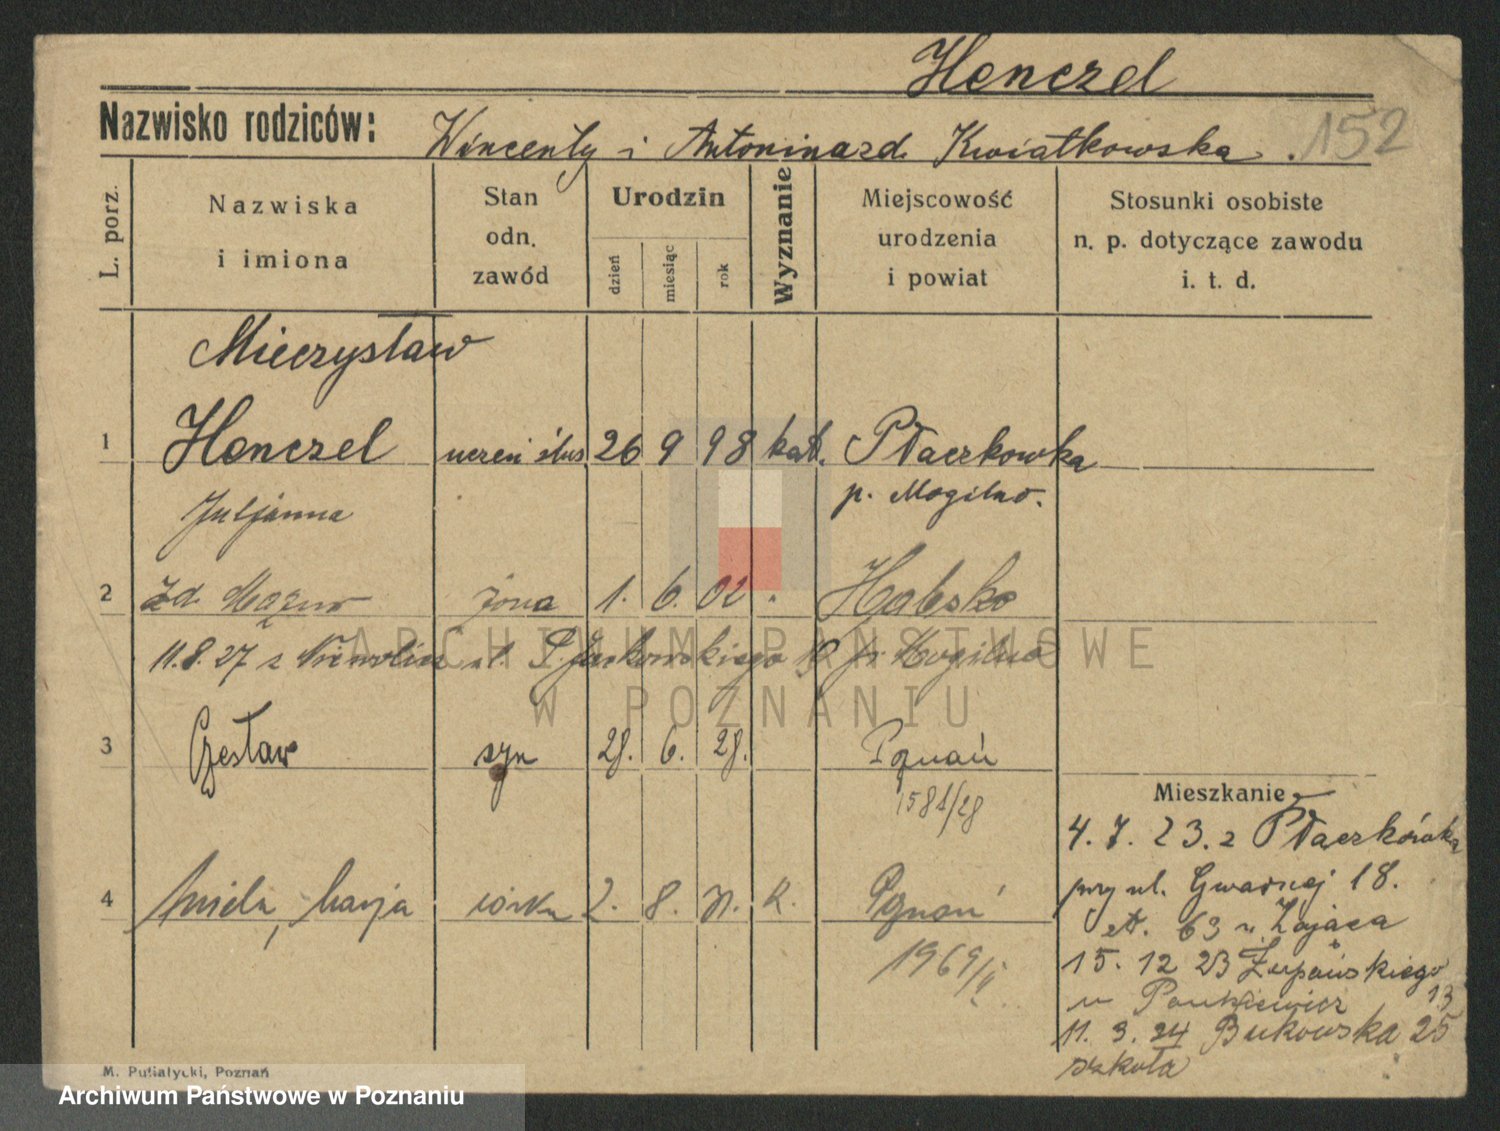 Henczel
152
Nazwisko rodziców: Wincenty i Antonina zd. Kwiatkowska.
L. porz.
Nazwiska i imiona
Stan odn. zawód
Urodzin
dzień
miesiąc
rok
Wyznanie
Miejscowość urodzenia i powiat
Stosunki osobiste n. p. dotyczące zawodu i. t. d.
Mieczysław
1 Henczel uczeń ślus 26 9 98 kat. Płaczkowka
p. Mogilno.
Juljanna
2 zd. Mazur żona 1. 6. 02 .
11.8.27 z ul. P. Jackowskiego p. Mogilno
3 Czesław syn 28. 6. 28. Poznań
1581/28
Mieszkanie
4. 7. 23. z Płaczkówka
przy ul. Gwarnej 18.
4 Aniela, Marja córka 2. 8. 31. k. Poznań
et. 63 u Zająca
1969/
15. 12 23 Żupańskiego 13
u Pankiewicz
11. 3. 24 Bukowska 25
szkoła
M. Putiatycki, Poznań
ARCHIWUM PAŃSTWOWE
W POZNANIU
Archiwum Państwowe w Poznaniu